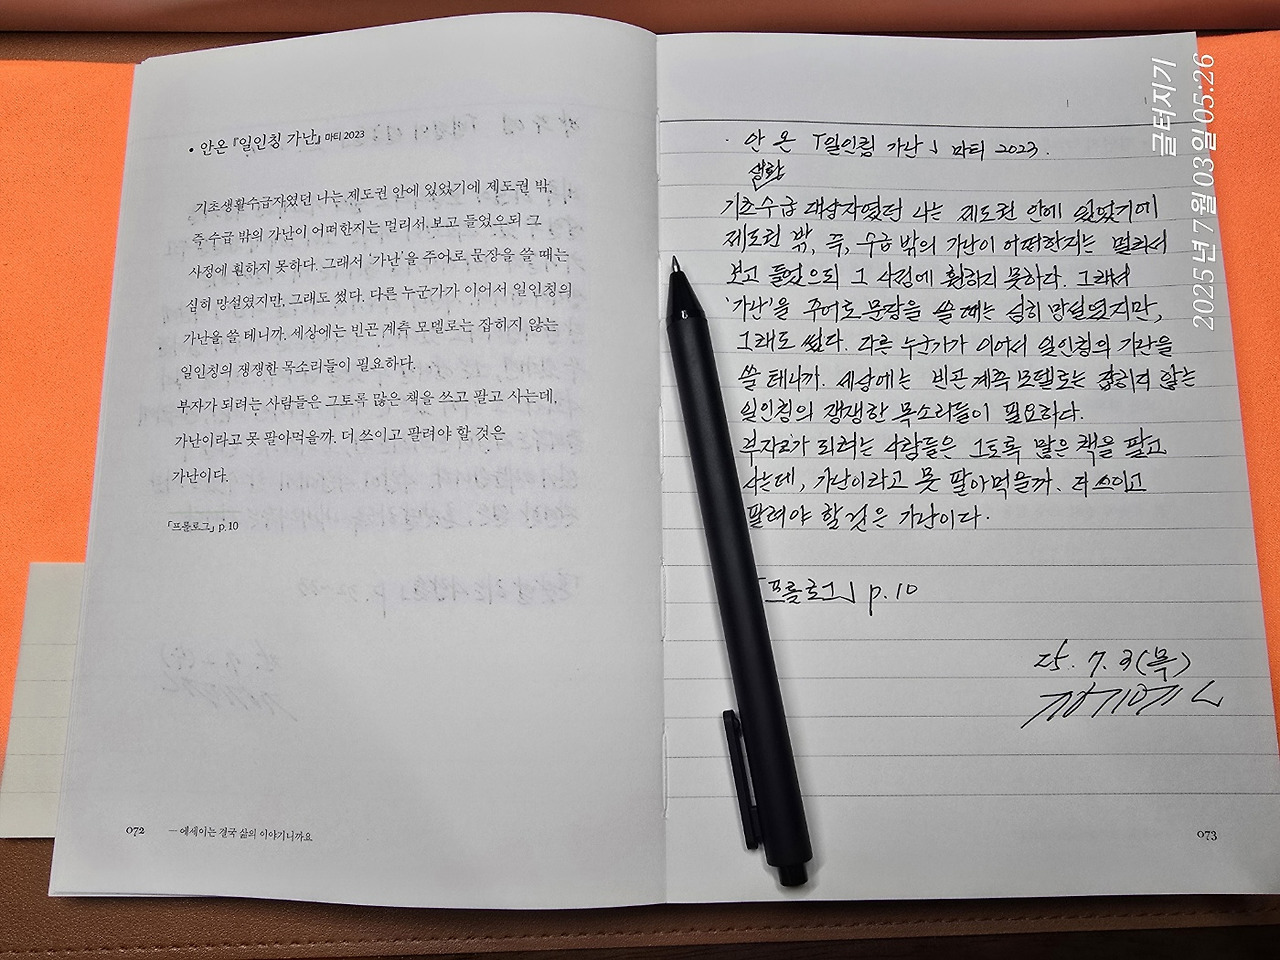 • 안온 『일인칭 가난』 마티 2023
기초생활수급자였던 나는 제도권 안에 있었기에 제도권 밖,
즉 수급 밖의 가난이 어떠한지는 멀리서 보고 들었으되 그
사정에 훤하지 못하다. 그래서 '가난'을 주어로 문장을 쓸 때는
심히 망설였지만, 그래도 썼다. 다른 누군가가 이어서 일인칭의
가난을 쓸 테니까. 세상에는 빈곤 계측 모델로는 잡히지 않는
일인칭의 쟁쟁한 목소리들이 필요하다.
부자가 되려는 사람들은 그토록 많은 책을 쓰고 팔고 사는데,
가난이라고 못 팔아먹을까. 더 쓰이고 팔려야 할 것은
가난이다.
「프롤로그」 p.10
072 — 에세이는 결국 삶의 이야기니까요
· 안온 「일인칭 가난」 마티 2023.
생활
기초수급 대상자였던 나는 제도권 안에 있었기에
제도권 밖, 즉, 수급 밖의 가난이 어떠한지는 멀리서
보고 들었으되 그 사정에 훤하지 못하다. 그래서
'가난'을 주어로 문장을 쓸 때는 심히 망설였지만,
그래도 썼다. 다른 누군가가 이어서 일인칭의 가난을
쓸 테니까. 세상에는 빈곤 계측 모델로는 잡히지 않는
일인칭의 쟁쟁한 목소리들이 필요하다.
부자가 되려는 사람들은 그토록 많은 책을 팔고
사는데, 가난이라고 못 팔아먹을까. 더 쓰이고
팔려야 할 것은 가난이다.
「프롤로그」 p.10
25. 7. 3(목)
073
글터지기
2025년 7월 03일 05:26